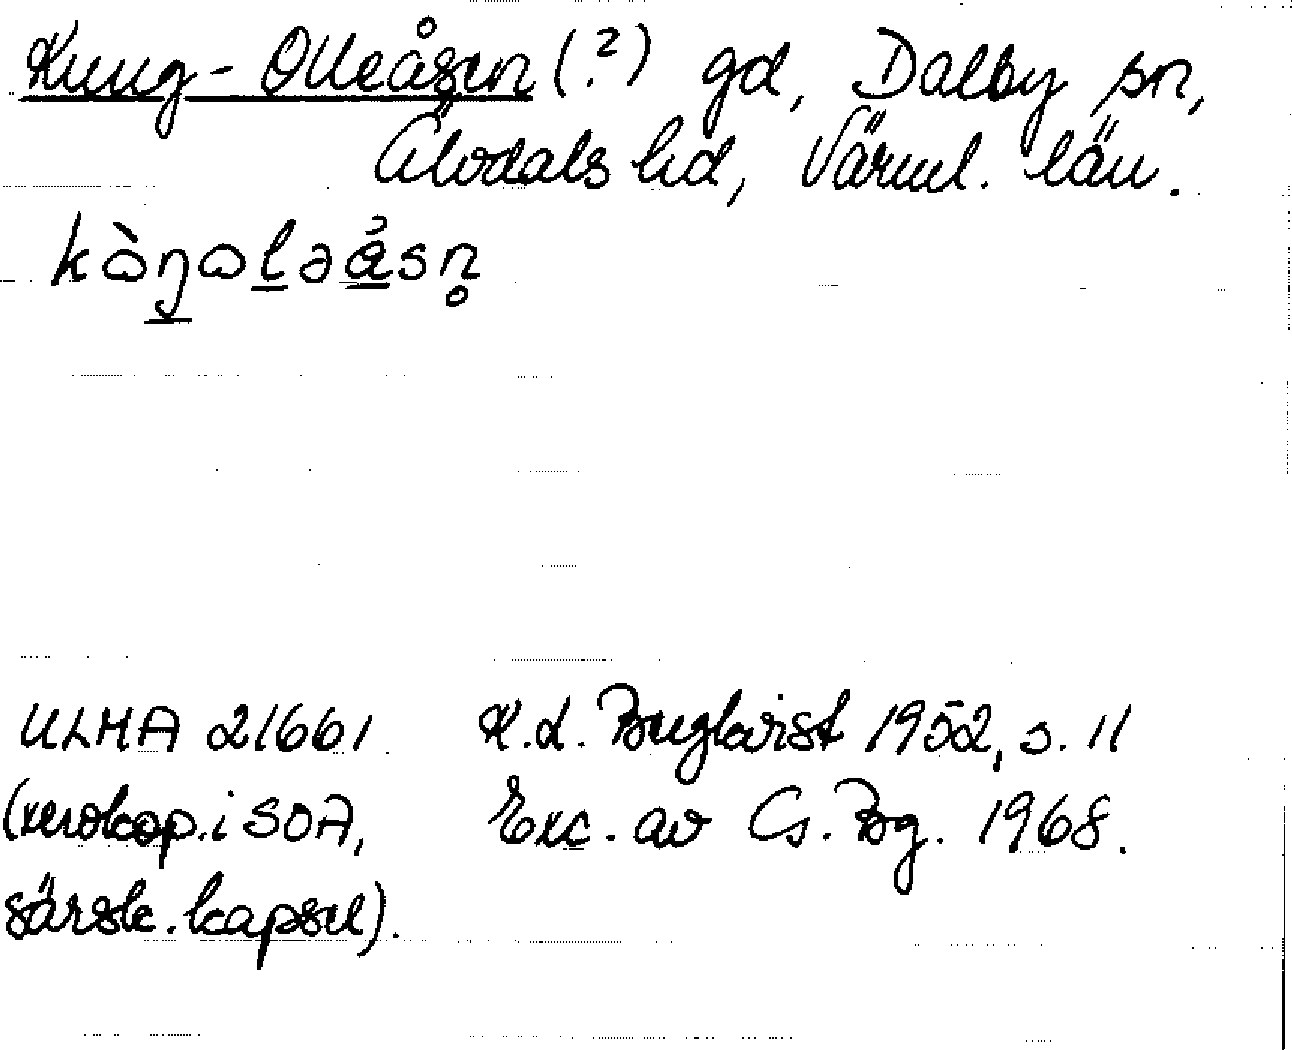 Kung-Olleåsen (?) gd, Dalby sn,
Älvdals hd, Värml. län.
ULMA 21661 K.L. Buglqvist 1952, s. 11
(xerokop. i SOA, Exc. av G. Bg. 1968.
särsk. kapsel).